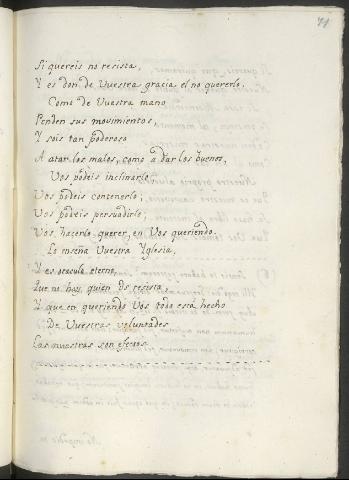 71
Si quereis no resista,
Y es don de Vuestra gracia el no quererlo.
Como de Vuestra mano
Penden sus movimientos,
Y sois tan poderoso
A atar los malos, como a dar los buenos,
Vos podeis inclinarlo;
Vos podeis contenerlo;
Vos podeis persuadirlo;
Vos hacerlo querer, en Vos queriendo.
Lo enseña Vuestra Yglesia,
Y es oraculo eterno,
Que no hay, quien Os resista
Y que en queriendo Vos todo está hecho
De Vuestras voluntades
Las nuestras son efectos